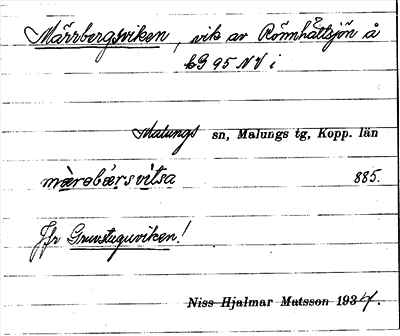 Märrbergsviken, vik av Rönnhåttsjön å
EG 95 NV i
Malungs sn, Malungs tg, Kopp. län
märrbärsvitsa 885.
Jfr Gruvstuguviken!
Niss Hjalmar Matsson 1937.